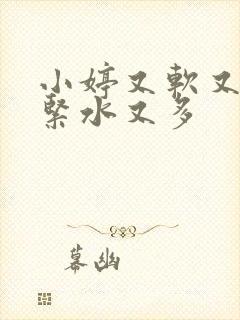 小婷又軟又
緊水又多
幕幽